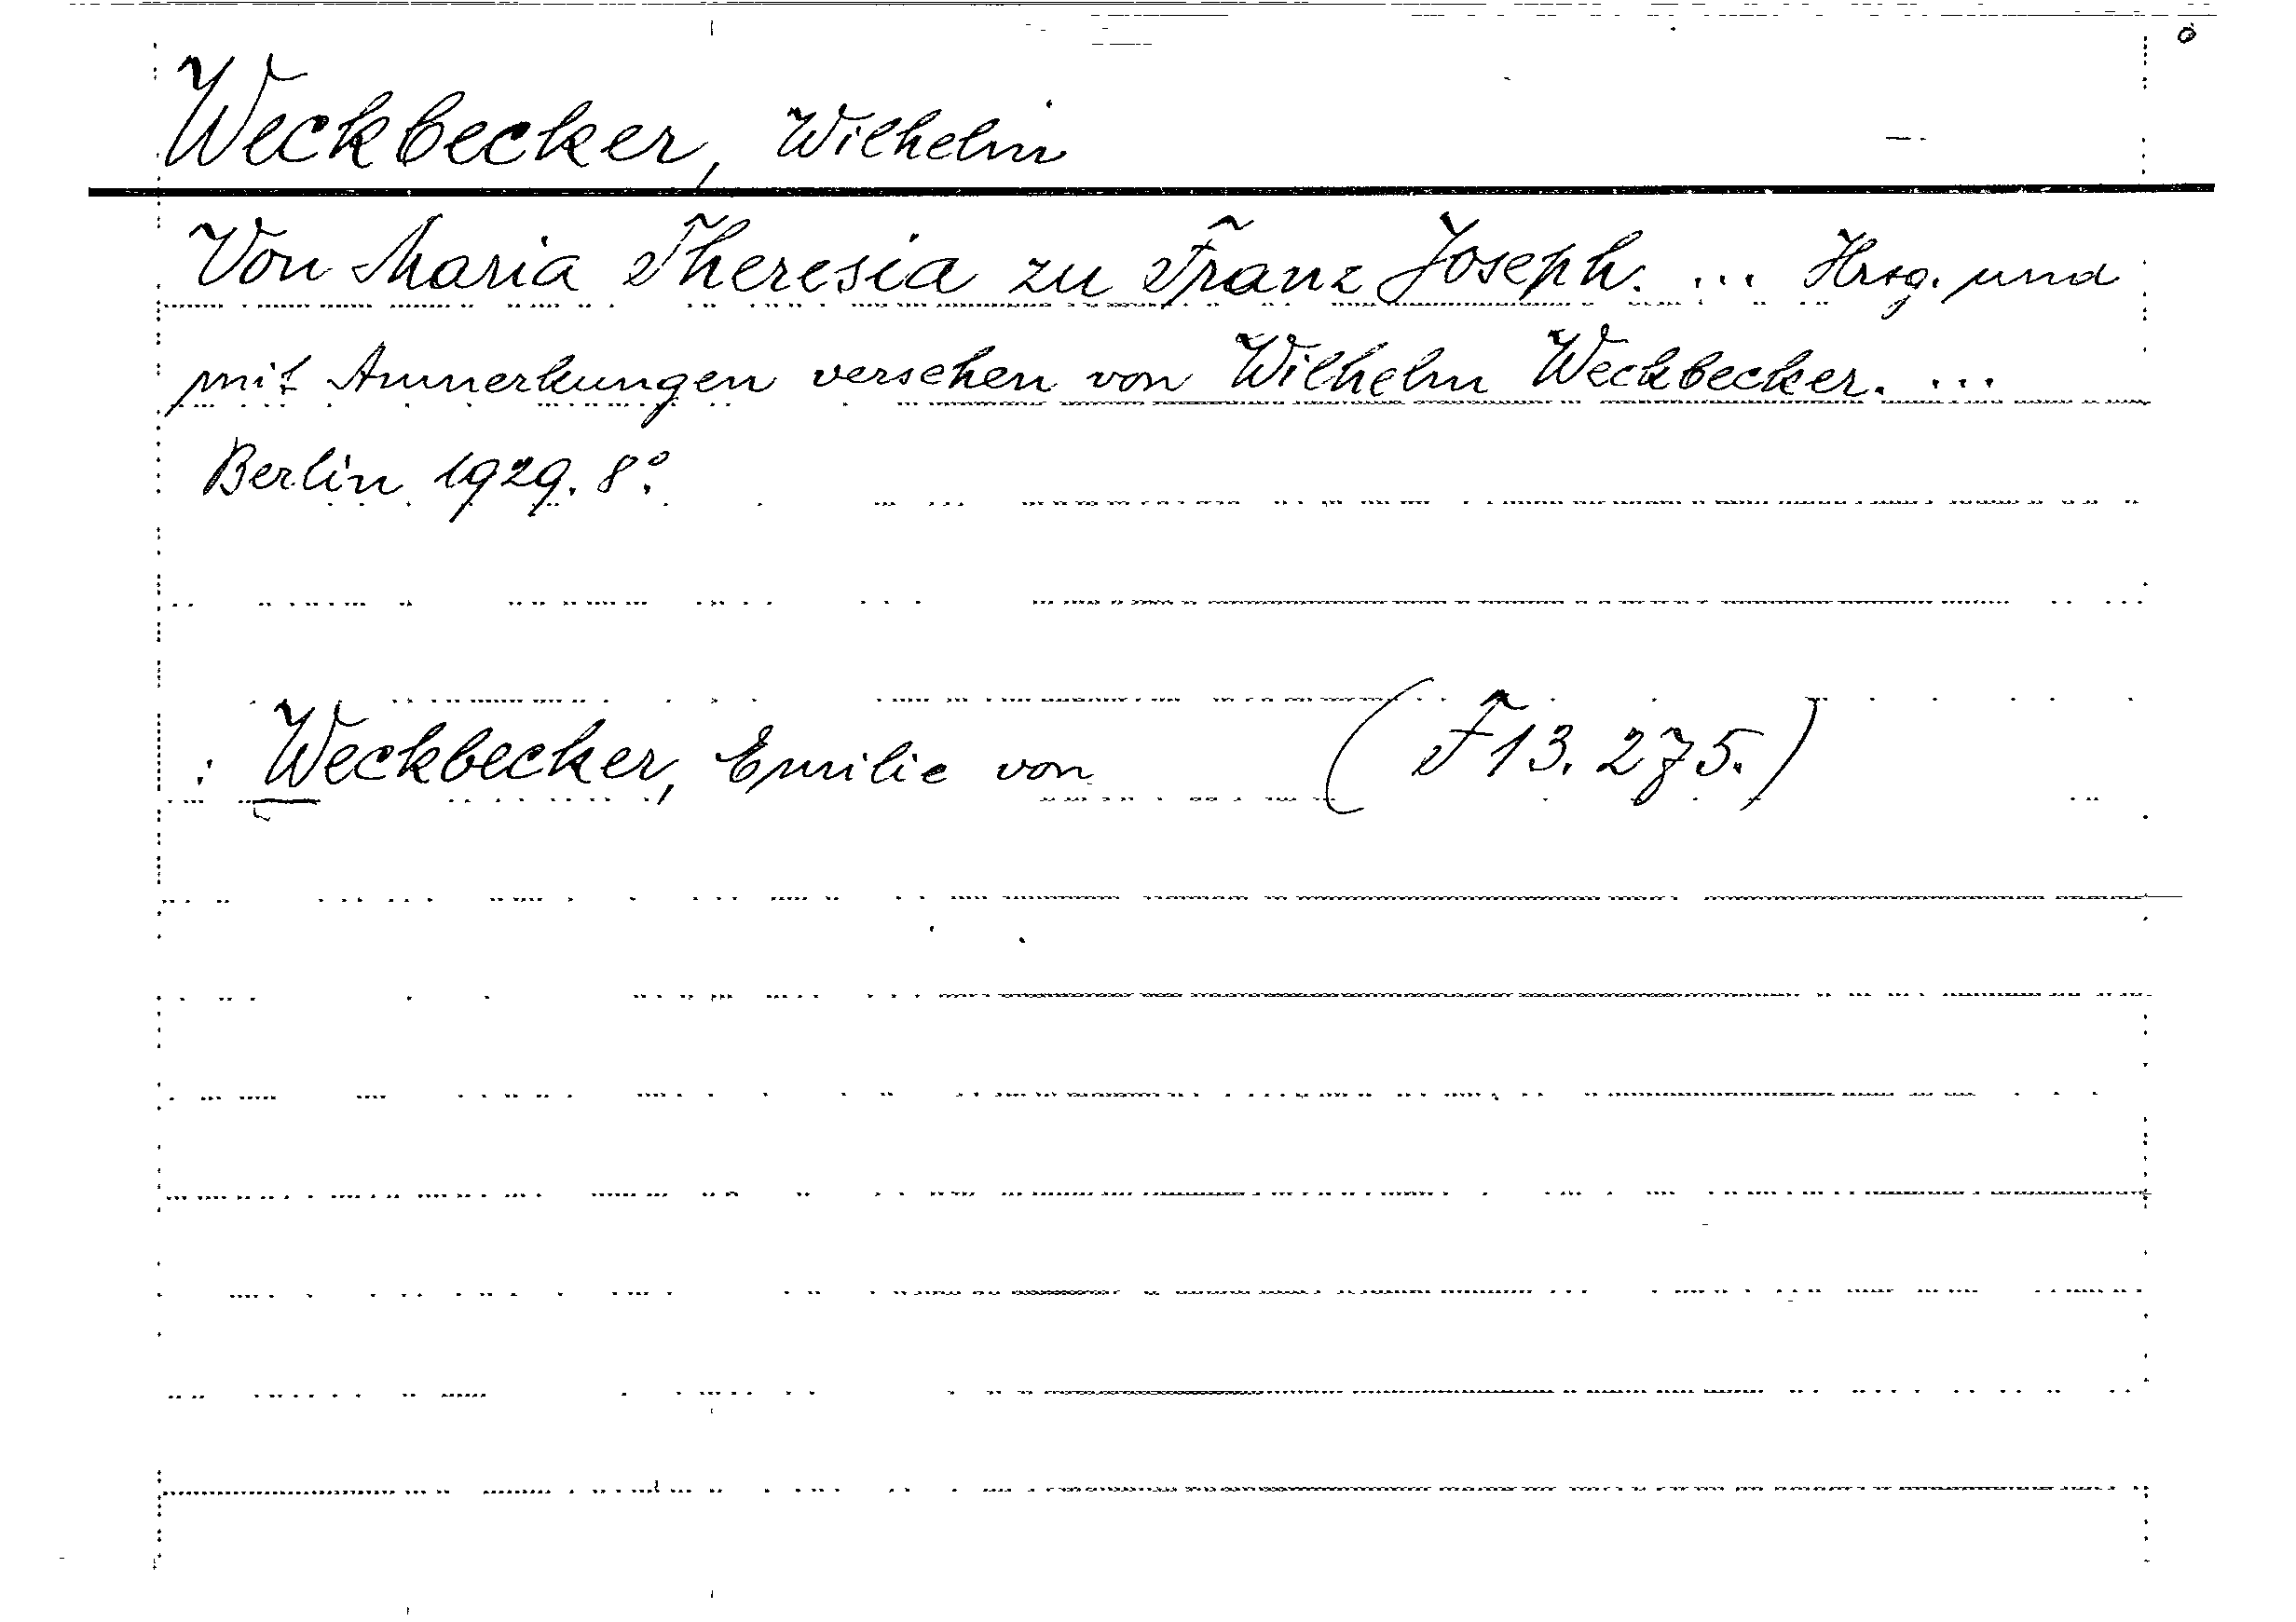 Weckbecker, Wilhelm
Von Maria Theresia zu Franz Joseph. ... Hrsg. und
mit Anmerkungen versehen von Wilhelm Weckbecker. ...
Berlin 1929. 8°.
: Weckbecker, Emilie von (F 13. 275.)